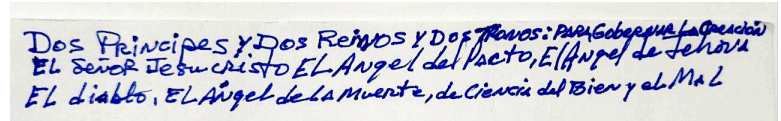 Dos Principes y Dos Reinos y Dos Tronos: PARA Gobernar La Creación
EL SEÑOR Jesucristo EL Angel del Pacto, El Angel de Jehova
El diablo, EL Ángel de la Muerte, de Ciencia del Bien y el Mal